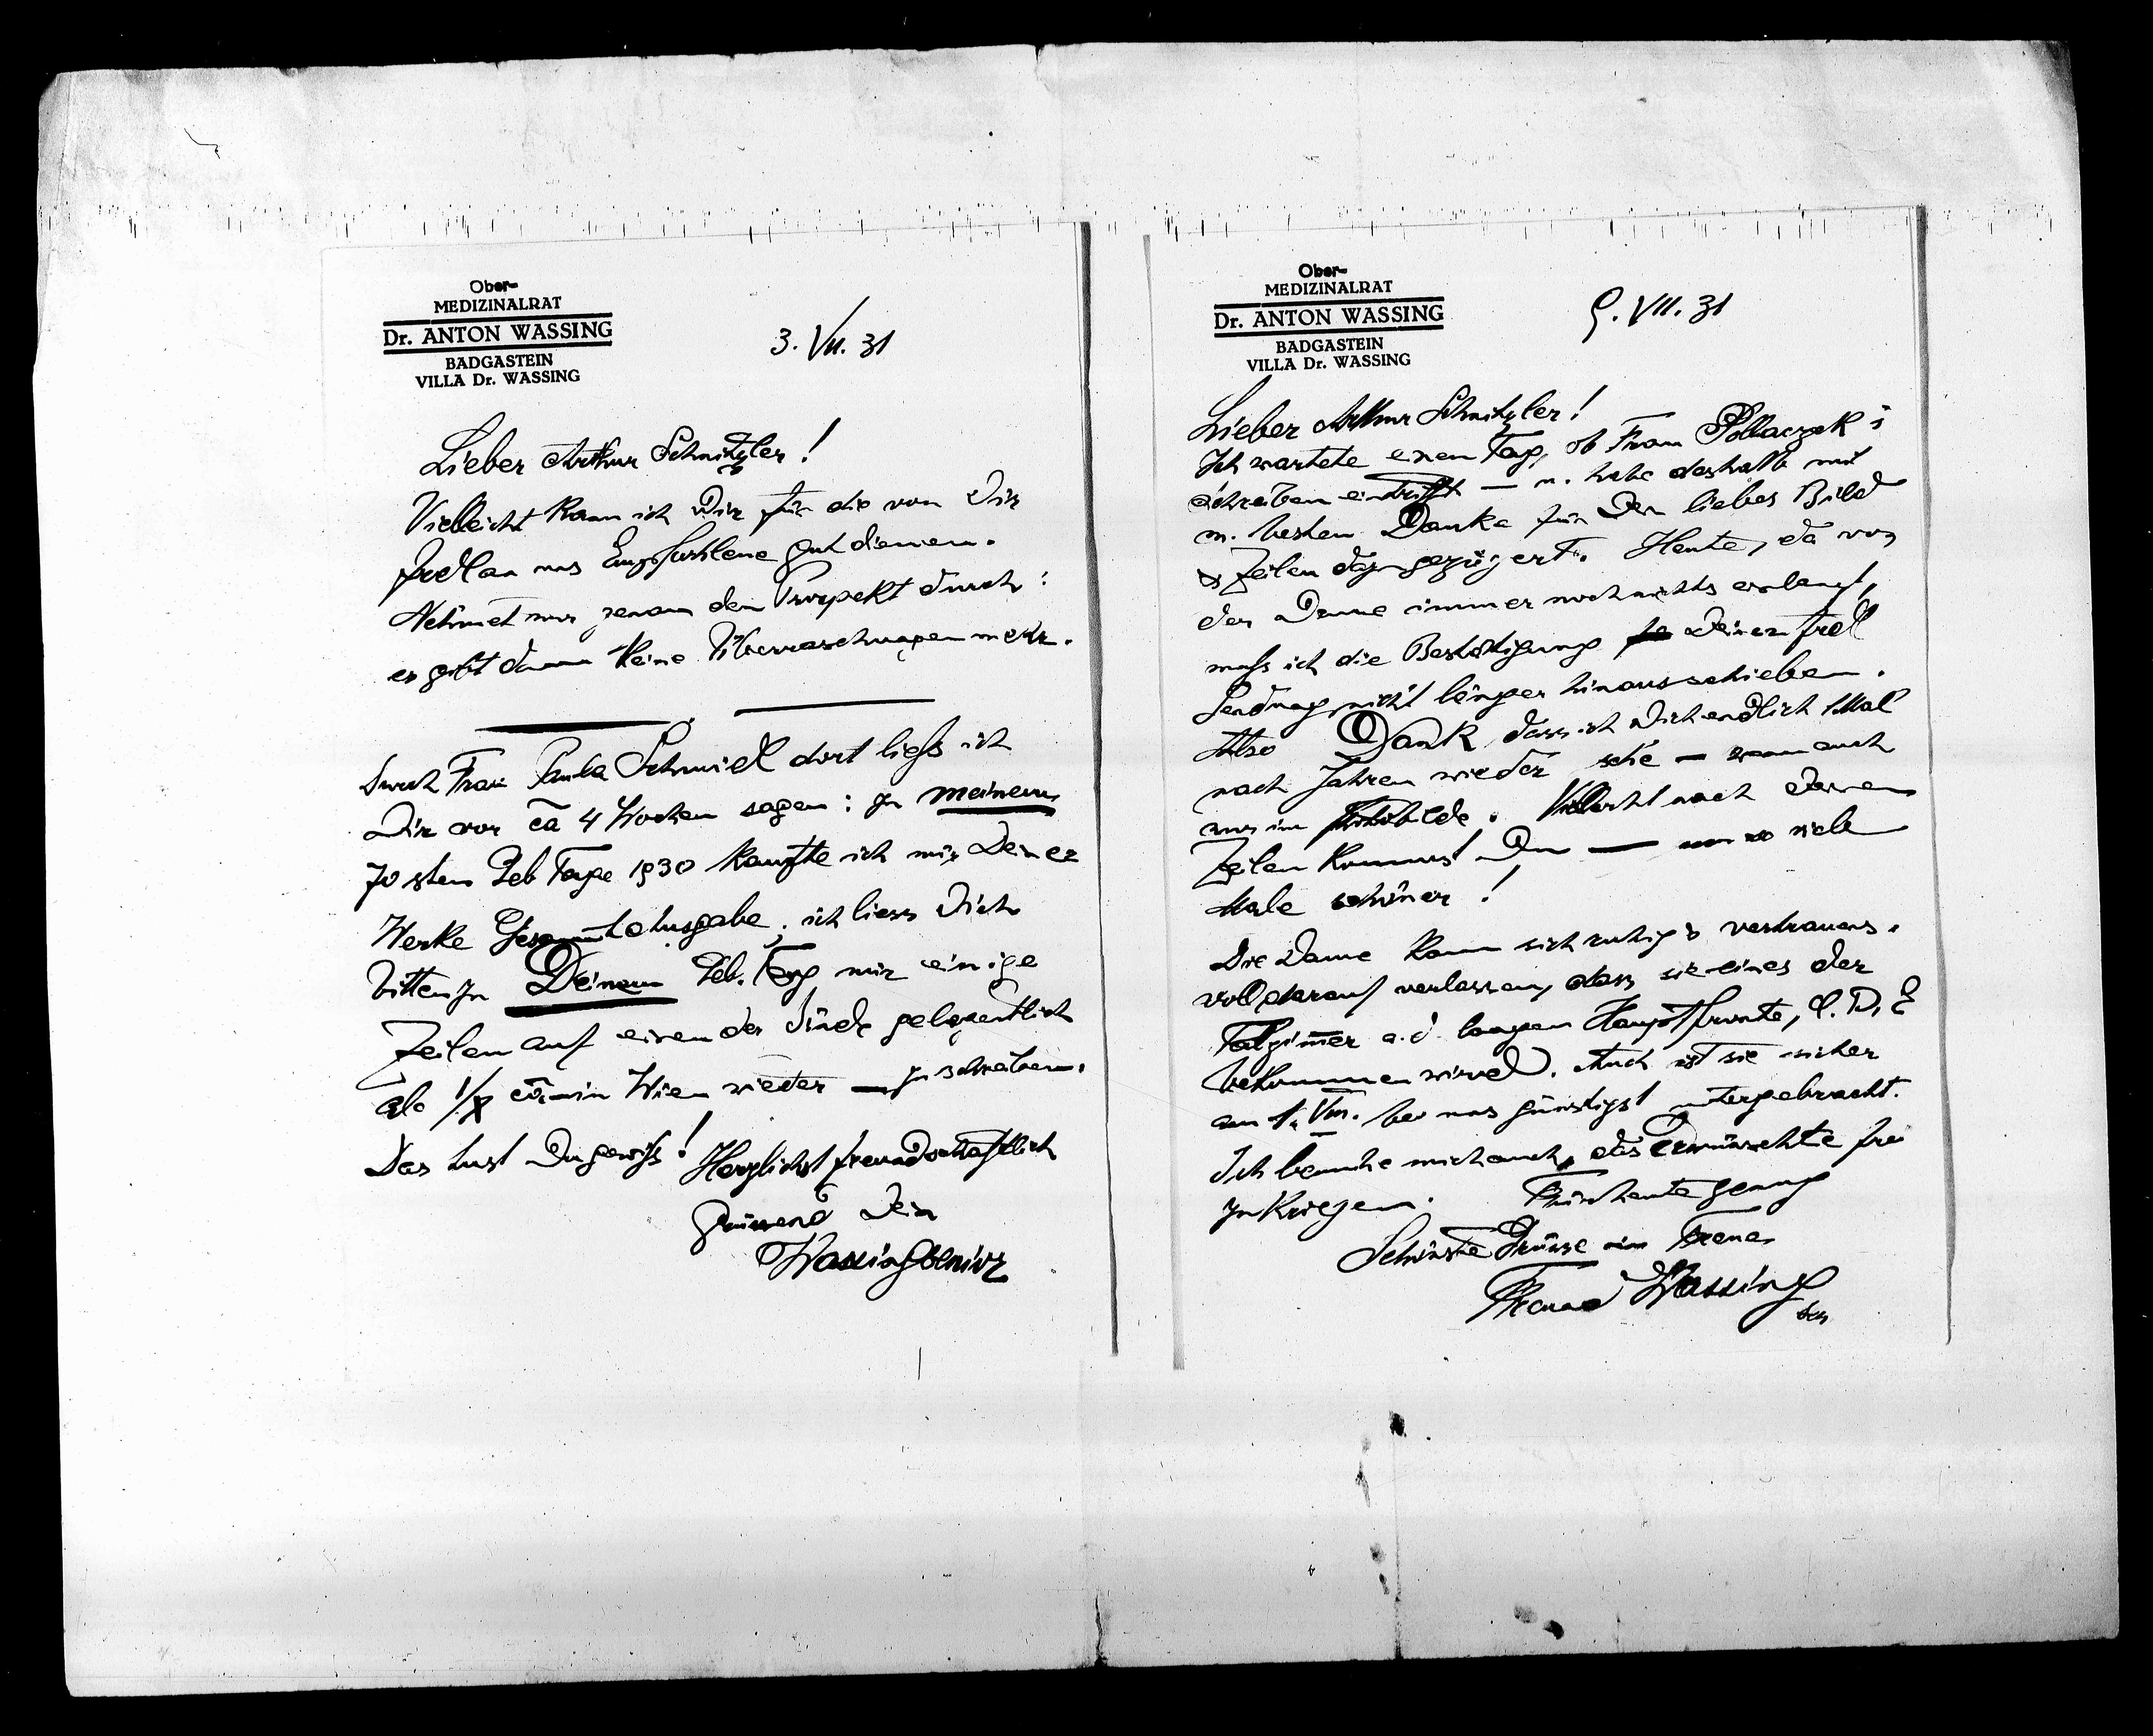 Ober-
MEDIZINALRAT
Dr. ANTON WASSING
BADGASTEIN
VILLA Dr. WASSING
3. VII. 31
Lieber Arthur Schnitzler!
Vielleicht kann ich Dir für die von Dir
frdl an uns Empfohlene gut dienen.
Nehmet nur genau den Prospekt durch:
es gibt dann keine Überraschungen mehr.
Durch Frau Paula Schmidl dort ließ ich
Dir vor ca 4 Wochen sagen: zu meinem
70 sten Geb Tage 1930 kaufte ich mir Deiner
Werke Gesammtausgabe; ich liess Dich
bitten zu Deinem Geb. Tag mir einige
Zeilen auf einen der Bände gelegentlich
als 1/X in Wien wieder — zu schreiben.
Das tust Du gewiß! Herzlichst freundschaftlich
Grüssend Dein
Wassing senior
Ober-
MEDIZINALRAT
Dr. ANTON WASSING
BADGASTEIN
VILLA Dr. WASSING
9. VII. 31
Lieber Arthur Schnitzler!
Ich wartete einen Tag, ob Frau Pollaczek
schreiben eintrifft — u. habe deshalb mit
m. besten Danke für Dein liebes Bild
& Zeilen dazu gezögert. Heute, da von
der Dame immer noch nichts einlangt,
muß ich die Bestätigung Deiner frdl
Sendung nicht länger hinausschieben.
Also Dank, dass ich Dich endlich Mal
nach Jahren wieder sehe — wenn auch
nur im Lichtbilde. Vielleicht nach Deinen
Zeilen kommst Du — um so viele
Male schöner!
Die Dame kann sich ruhig & vertrauens-
voll darauf verlassen, dass sie eines der
Talzimmer a. d. langen Hauptfronte, C. D. E
bekommen wird. Auch ist sie sicher
am 1. VIII. bei uns günstigst untergebracht.
Ich bemühe mich auch, das Erwünschte frei
zu kriegen. Für heute genug
Schönste Grüsse Dein treuer
Freund Wassing
sen